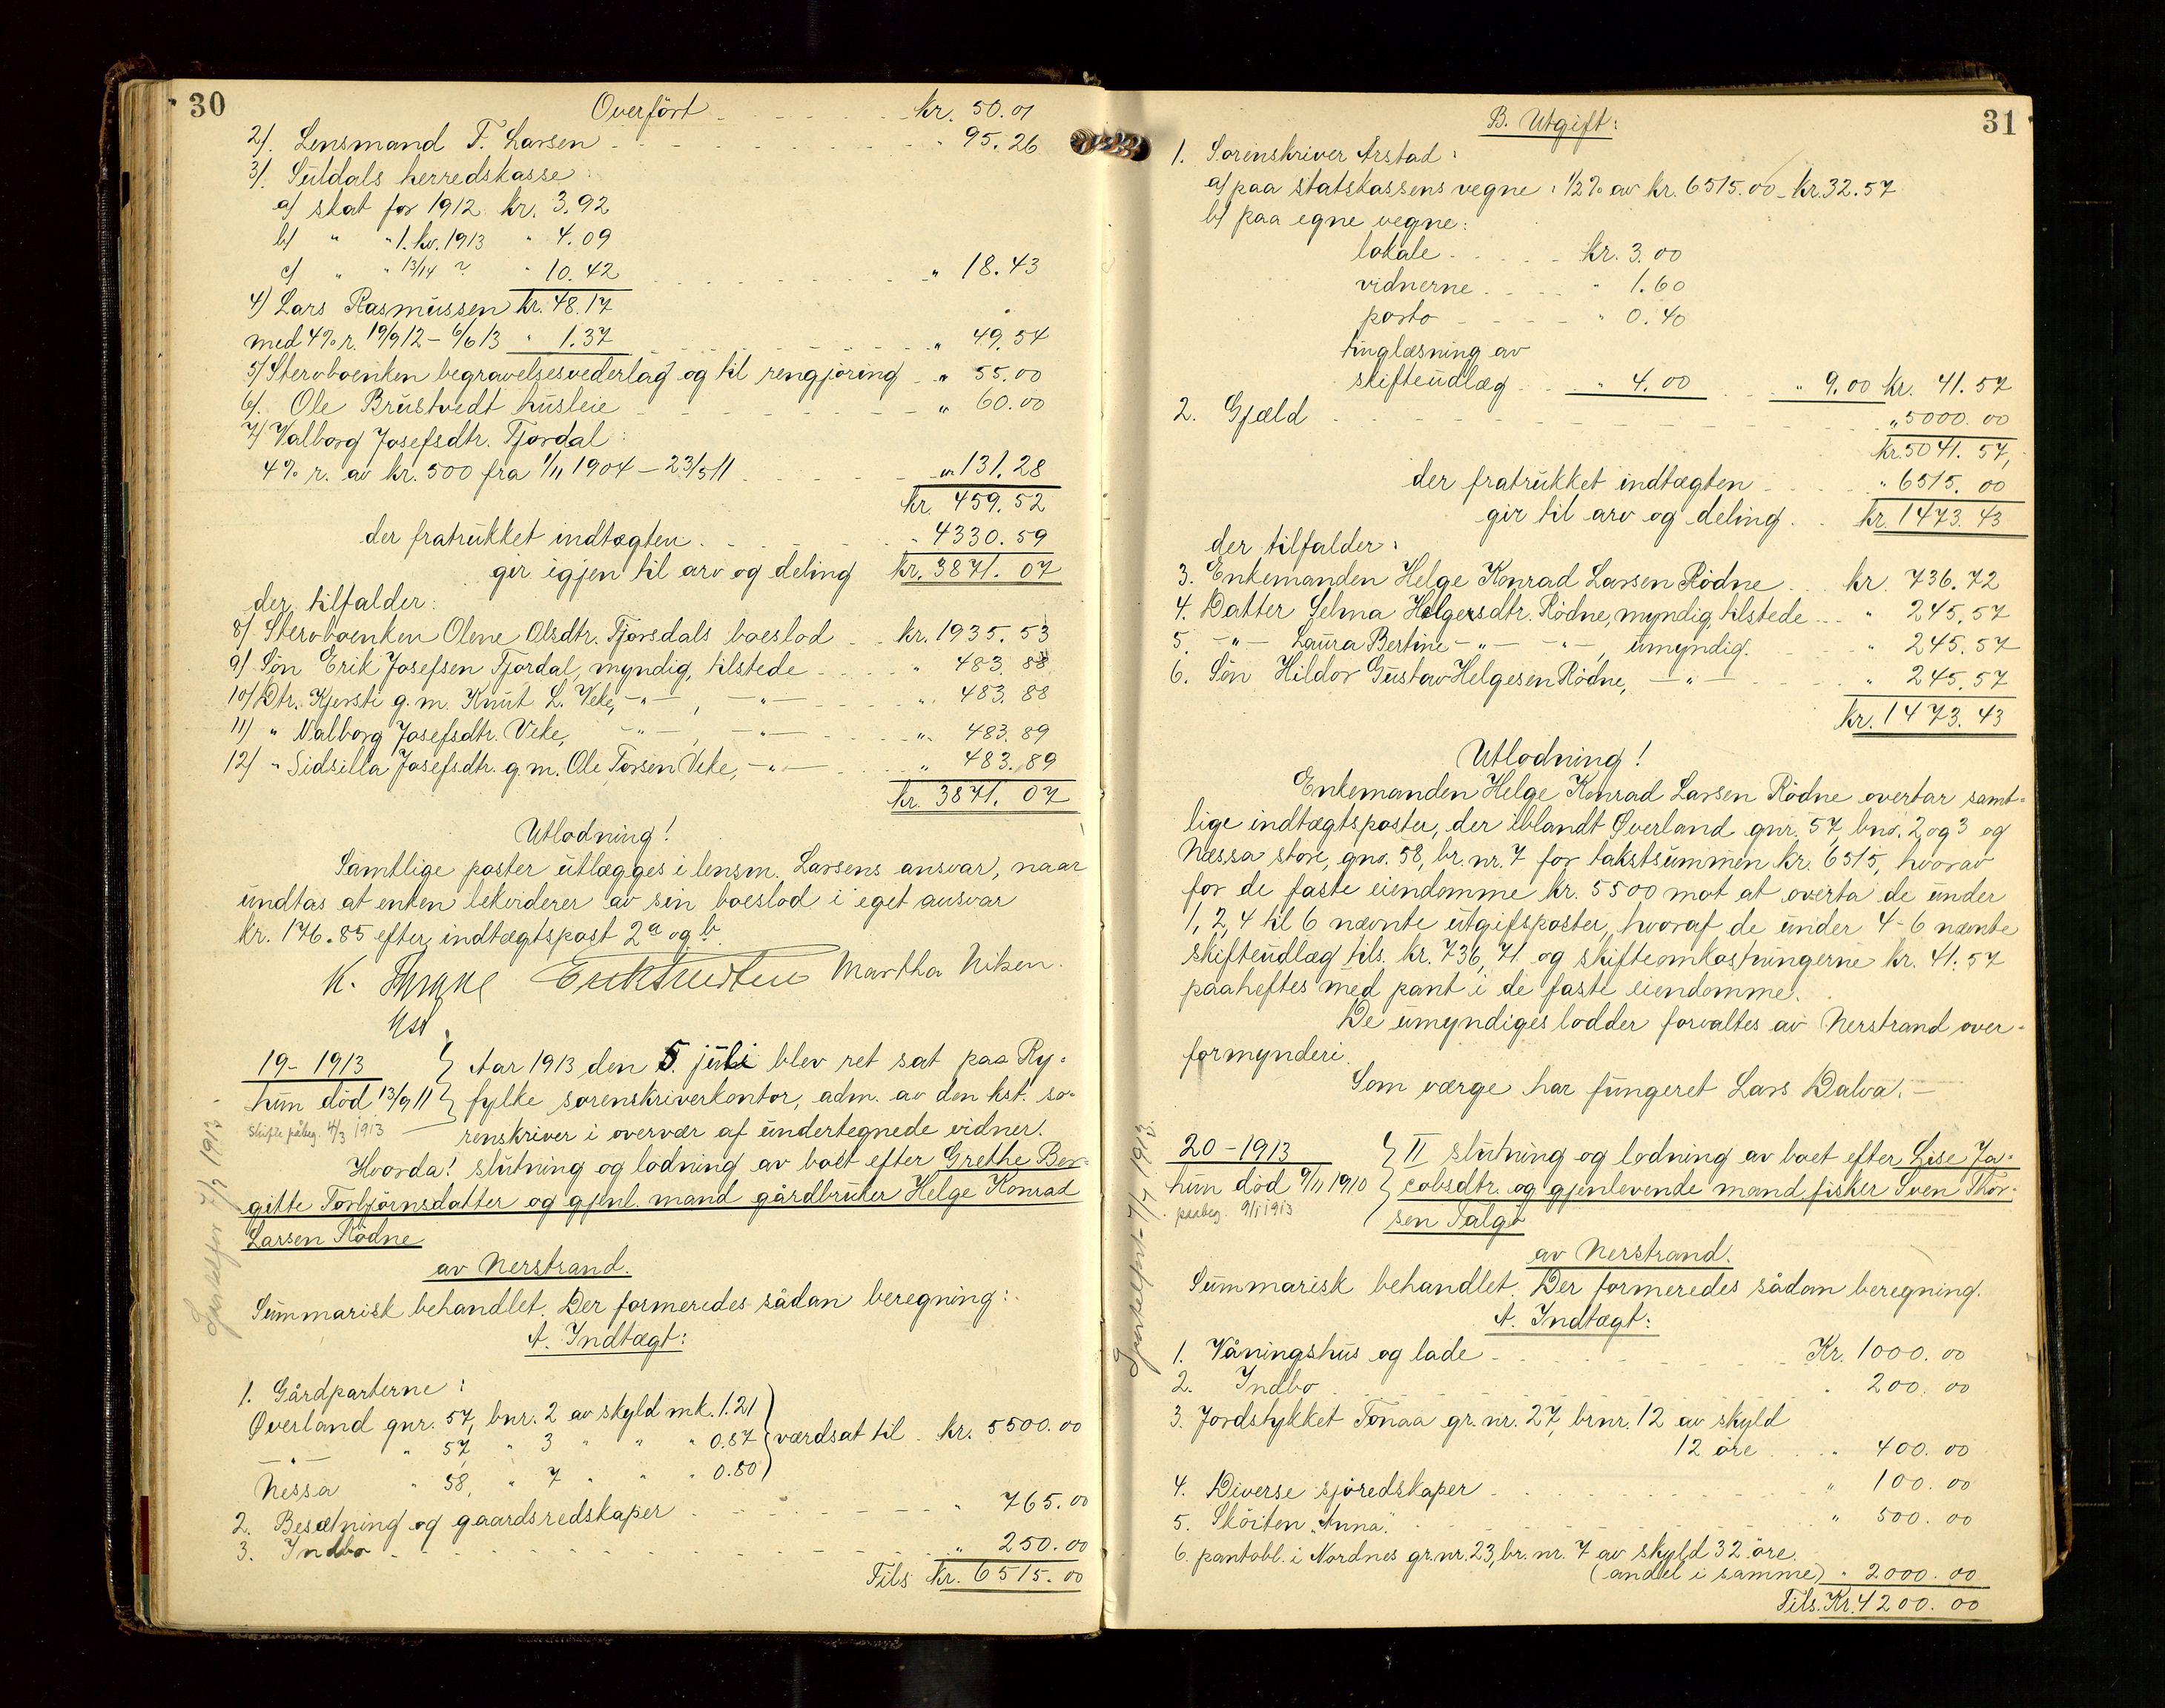 30
Overført kr. 50.01
2). Lensmand T. Larsen " 95.26
3). Suldals herredskasse:
a) skat for 1912 kr. 3.92
b) " " 1. kv. 1913 " 4.09
c) " " 13/14 ? " 10.42 " 18.43
4) Lars Rasmussen kr. 48.17
med 4% r. 19/9 12 - 6/6 13 " 1.37 " 49.54
5) Stervboenken begravelsesvederlag og til rengjøring " 55.00
6). Ole Brustvedt husleie " 60.00
7) Valborg Josefsdtr. Fjordal:
4% r. av kr. 500 fra 1/11 1904 - 23/5 11 " 131.28
kr. 459.52
der fratrukket indtægten " 4330.59
gir igjen til arv og deling kr. 3871.07
der tilfalder:
8) Stervboenken Olene Olsdtr. Fjorsdals boeslod kr. 1935.53
9) Søn Erik Josefsen Fjordal, myndig, tilstede " 483.88
10) Dtr. Kjersti g. m. Knut L. Veke, -"- , -"- " 483.88
11) " Valborg Josefsdtr. Veke, -"- , -"- " 483.89
12) " Sidsilla Josefsdtr. g. m. Ole Torsen Veke, -"- " 483.89
kr. 3871.07
Utlodning!
Samtlige poster utlægges i lensm. Larsens ansvar, naar
undtas at enken lekviderer av sin boeslod i eget ansvar
kr. 176.85 efter indtægtspost 2a og b.
K. Martha Nilsen.
19 - 1913 } Aar 1913 den 5. juli blev ret sat paa Ry-
hun død 13/9 11 } fylke sorenskriverkontor, adm. av den kst. so-
Skifte påbeg. 4/3 1913 renskriver i overvær af undertegnede vidner.
Hvorda: slutning og lodning av boet efter Grethe Ber-
gitte Torbjørnsdatter og gjenl. mand gårdbruker Helge Konrad
Larsen Rødne
av Nerstrand.
Summarisk behandlet. Der formeredes sådan beregning:
A. Indtægt:
1. Gårdparterne:
Øverland gnr. 57, bnr. 2 av skyld mk. 1.21
-"- " 57, " 3 " " " 0.87 } værdsat til kr. 5500.00
Nessa " 58, " 7 " " " 0.80
2. Besætning og gaardsredskaper " 765.00
3. Indbo " 250.00
Tils kr. 6515.00
31
B. Utgift:
1. Sorenskriver Arstad:
a) paa statskassens vegne: 1/2% av kr. 6515.00 - kr. 32.57
b) paa egne vegne:
lokale kr. 3.00
vidnerne " 1.60
porto " 0.40
tinglæsning av
skifteudlæg " 4.00 " 9.00 kr. 41.57
2. Gjæld " 5000.00
kr. 5041.57,
der fratrukket indtægten " 6515.00
gir til arv og deling kr. 1473.43
der tilfalder:
3. Enkemanden Helge Konrad Larsen Rødne kr. 736.72
4. Datter Selma Helgesdtr. Rødne, myndig, tilstede " 245.57
5. -"- Laura Bertine -"- -"- , umyndig. " 245.57
6. Søn Hildor Gustav Helgesen Rødne, -"- " 245.57
kr. 1473.43
Utlodning!
Enkemanden Helge Konrad Larsen Rödne overtar samt-
lige indtægtsposter, der iblandt Øverland gnr. 57, bnr. 2 og 3 og
Næssa store, gnr. 58, br. nr. 7 for takstsummen kr. 6515, hvorav
for de faste eiendomme kr. 5500 mot at overta de under
1, 2, 4 til 6 nævnte utgifsposter, hvoraf de under 4-6 nævnte
skifteudlæg tils. kr. 736,71 og skifteomkostningerne kr. 41.57
paaheftes med pant i de faste eiendomme.
De umyndiges lodder forvaltes av Nerstrand over-
formynderi.
Som værge har fungeret Lars Dalva. -
20 - 1913 } II slutning og lodning av boet efter Lise Ja-
hun død 9/11 1910 } cobsdtr. og gjenlevende mand fisker Sven Thor-
paabeg. 9/1 1913 sen Talgø
av Nerstrand.
Summarisk behandlet. Der formeredes sådan beregning.
A. Indtægt:
1. Våningshus og lade Kr. 1000.00
2. Indbo " 200.00
3. Jordstykket Tonaa gr. nr. 27, brnr. 12 av skyld
12 øre " 400.00
4. Diverse sjøredskaper " 100.00
5. Skøiten "Anna" " 500.00
6. pantobl. i Nordnes gr. nr. 23, br. nr. 7 av skyld 32 øre.
(andel i samme) " 2000.00
Tils. Kr. 4200.00